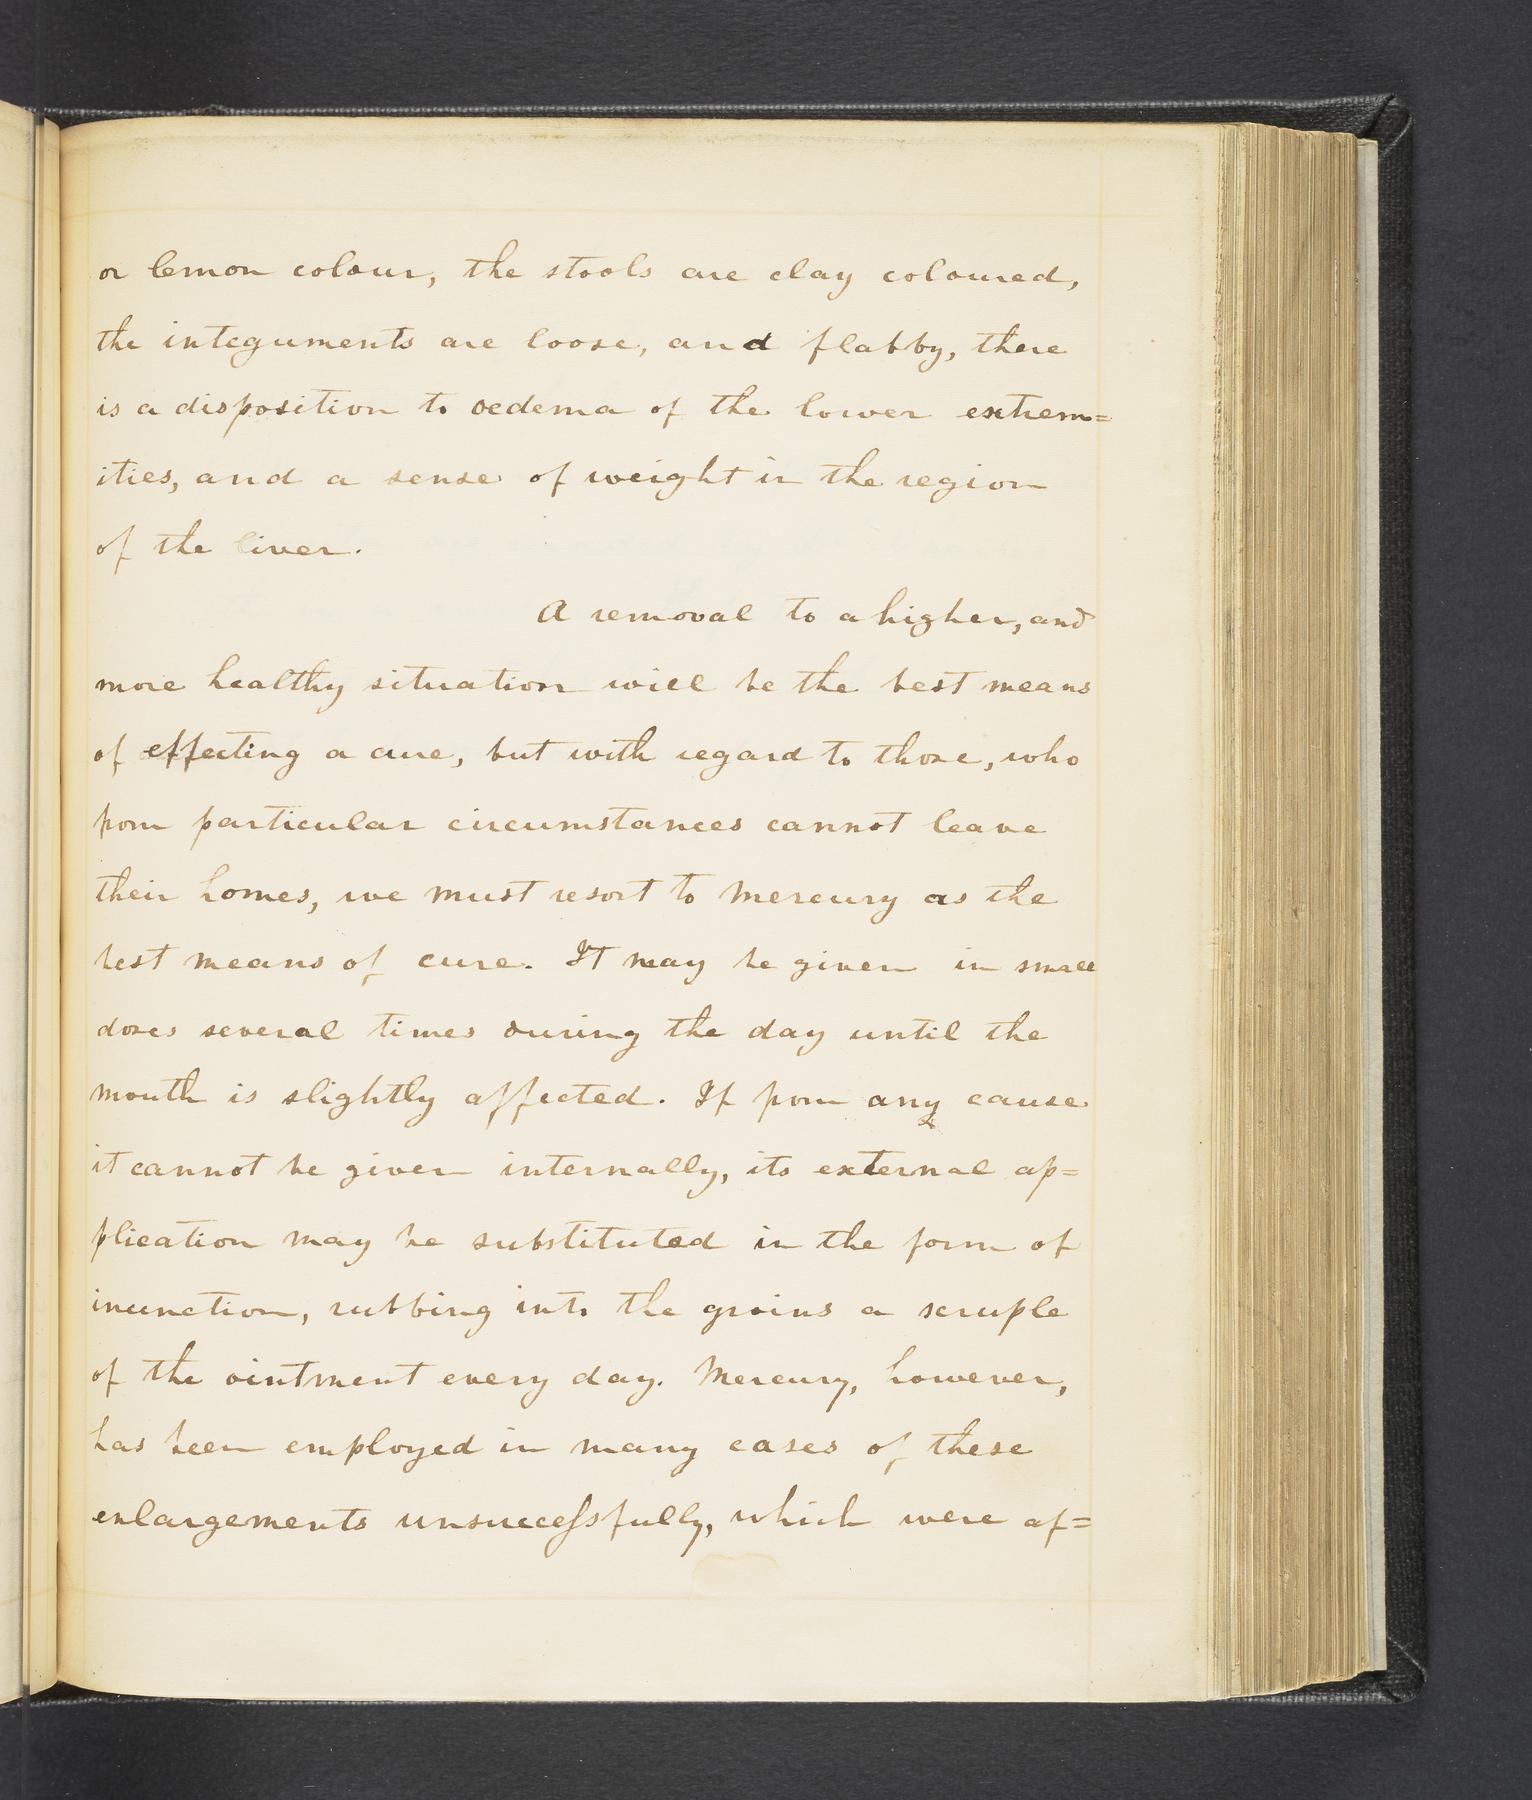 or lemon colour, the stools are clay coloured,
the integuments are loose, and flabby, there
is a disposition to oedema of the lower extrem=
ities, and a sense of weight in the region
of the liver.
A removal to a higher, and
more healthy situation will be the best means
of effecting a cure, but with regard to those, who
from particular circumstances cannot leave
their homes, we must resort to Mercury as the
best means of cure. It may be given in small
doses several times during the day until the
mouth is slightly affected. If from any cause
it cannot be given internally, its external ap=
plication may be substituted in the form of
inunction, rubbing into the groins a scruple
of the ointment every day. Mercury, however,
has been employed in many cases of these
enlargements unsuccessfully, which were af=